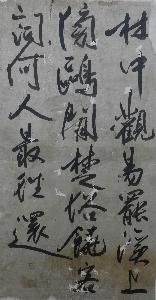 林中觀易罷溪上
鷗閒楚俗饒客
詞何人最往還